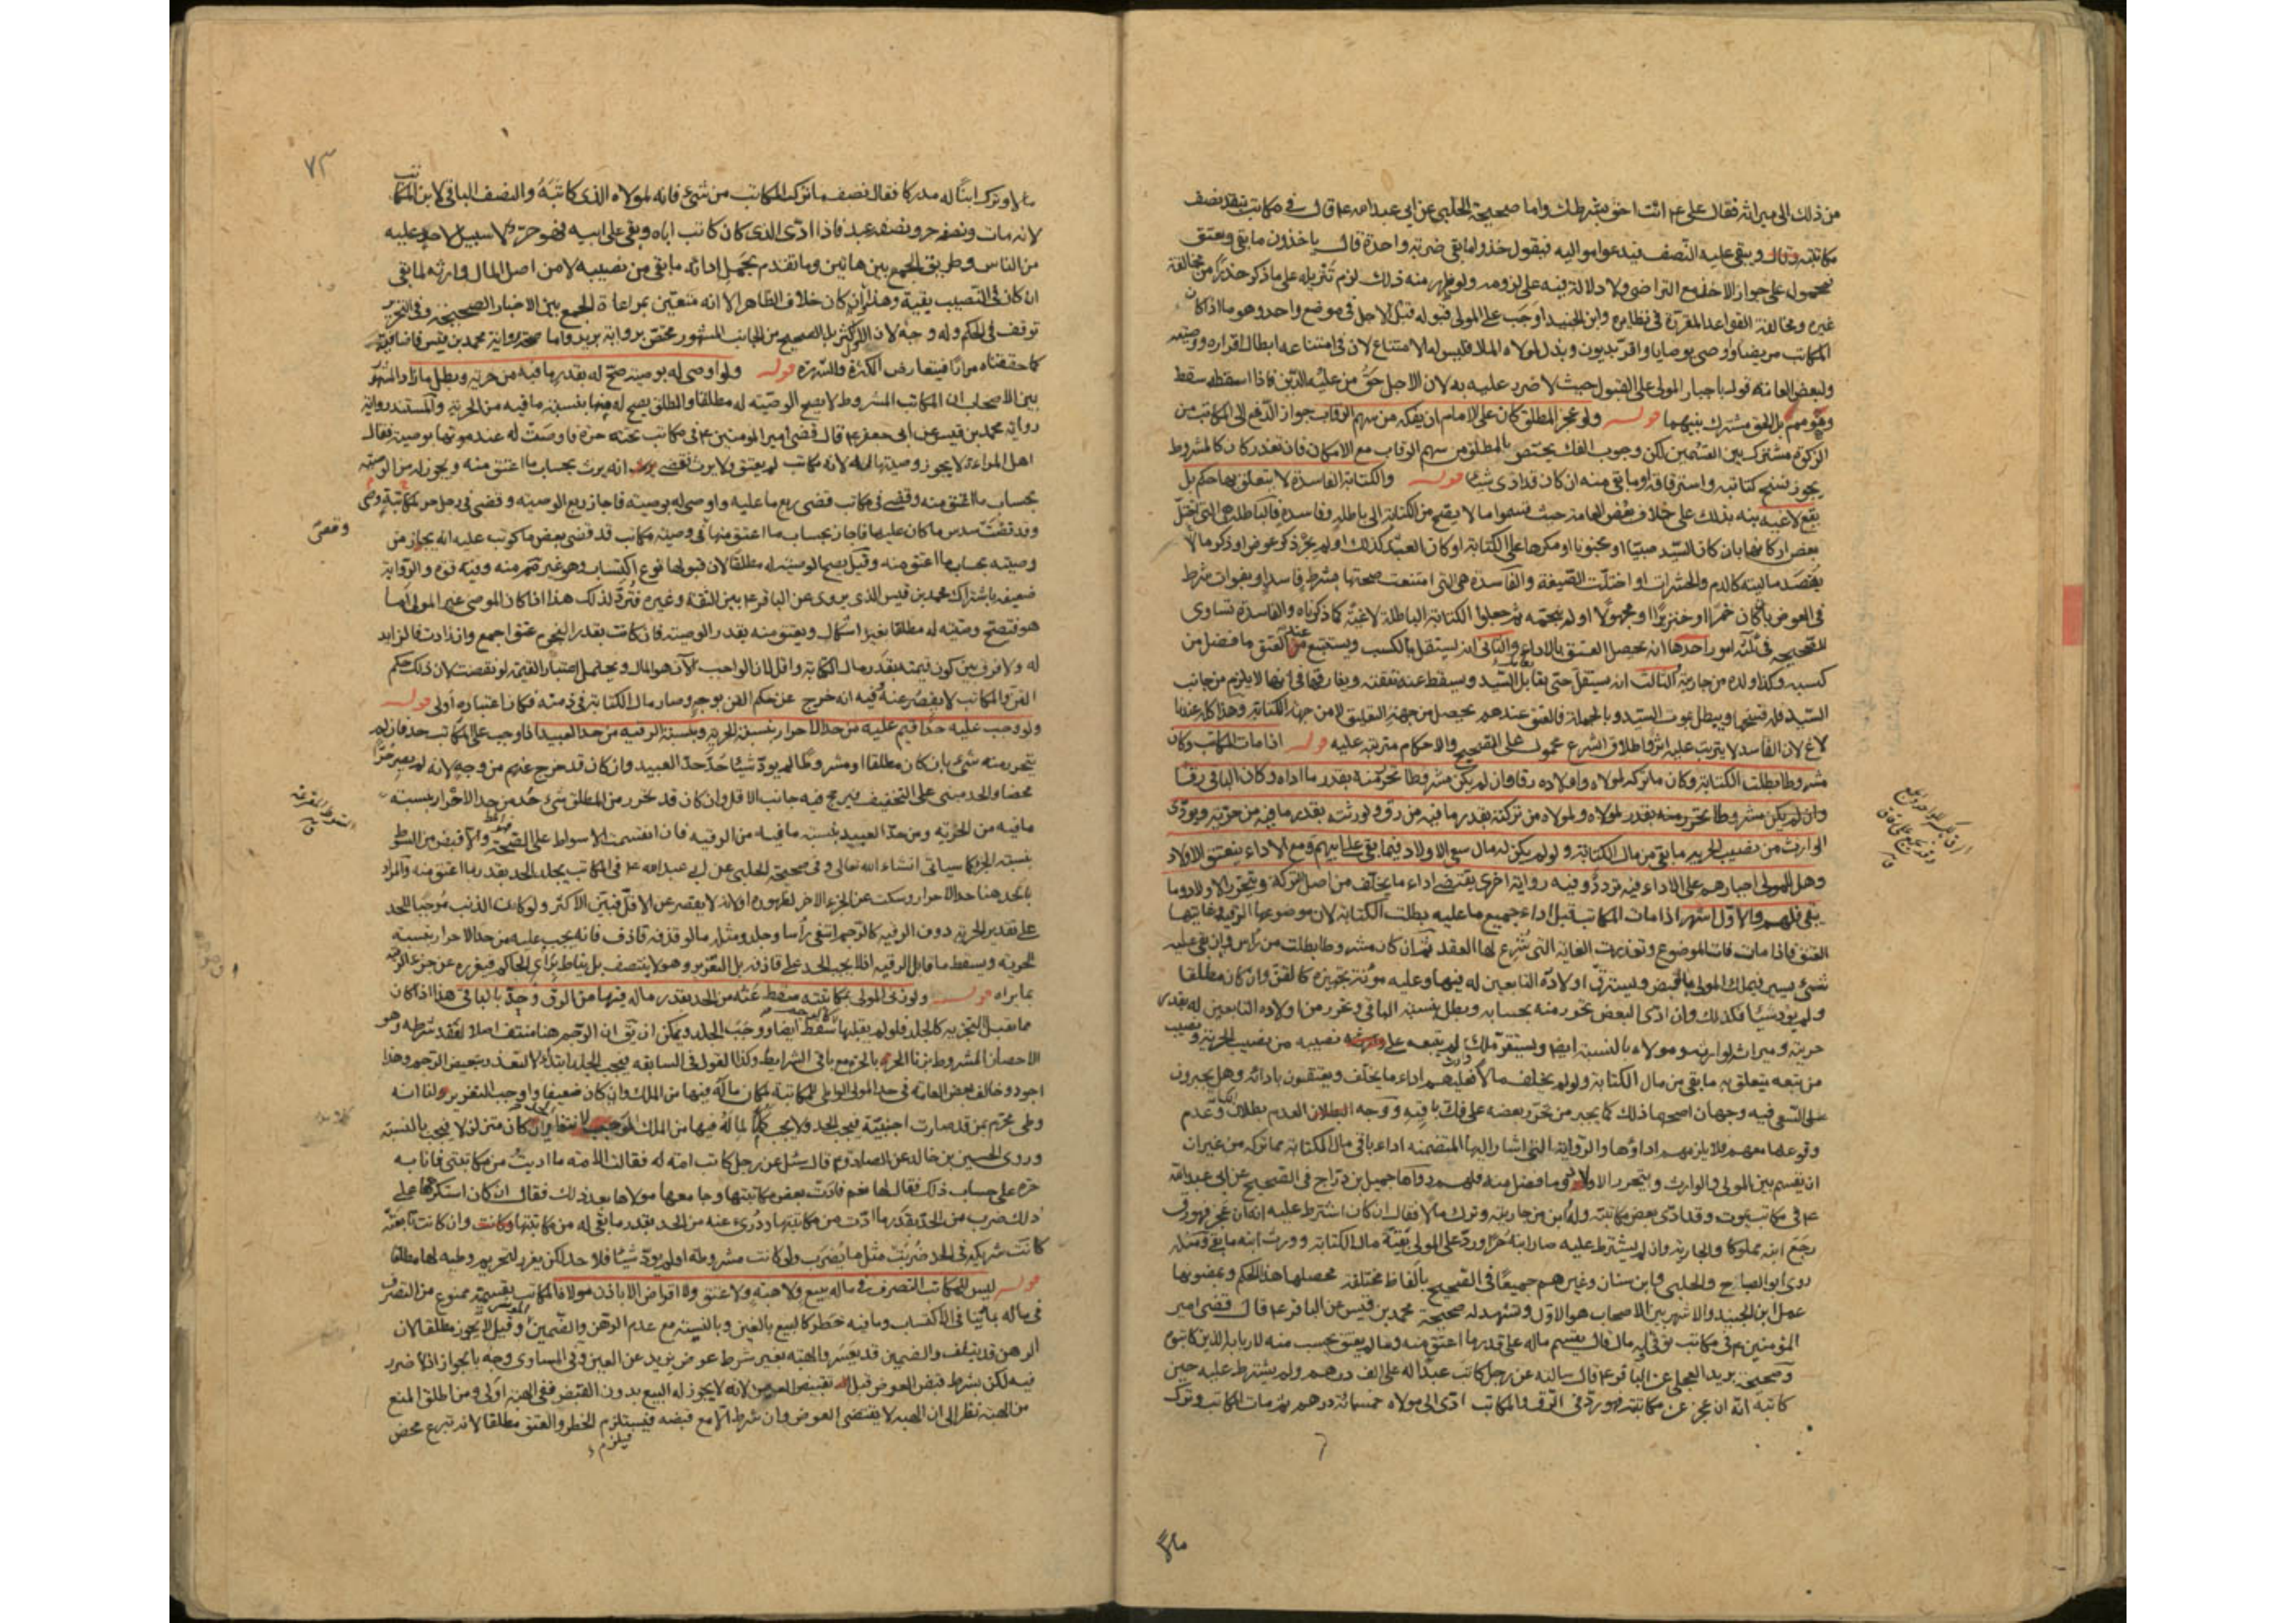 من ذلك الى ميراثه فقال علي ع انت احق بشرطك واما صحيحة الحلبي عن ابي عبد الله ع قال في مكاتب ينقد نصف
مكاتبته ويبقى عليه النصف فيدعو مواليه فيقول خذوا ما بقي ضربة واحدة قال ياخذون ما بقي ويعتق
فمحمولة على جواز الاخذ مع التراضي ولا دلالة فيه على لزومه ولو ظهر منه ذلك لزم تنزيله على ما ذكر حذرا من مخالفة
غيره ومخالفة القواعد المقررة في نظايره وابن الجنيد اوجب على المولى قبوله قبل الاجل في موضع واحد وهو ما اذا كان
المكاتب مريضا واوصى بوصايا واقر بديون وبذل لمولاه المال فليس له الامتناع لان في امتناعه ابطال اقراره ووصيته
ولبعض العامة قول باجبار المولى على القبول حيث لا ضرر عليه به لان الاجل حق من عليه الدين فاذا اسقطه سقط
وهو مم بل الحق مشترك بينهما قوله ولو عجز المطلق كان على الامام ان يفكه من سهم الرقاب جواز الدفع الى المكاتب من
الزكوة مشترك بين القسمين لكن وجوب الفك يختص بالمطلق من سهم الرقاب مع الامكان فان تعذر كان كالمشروط
يجوز فسخ كتابته واسترقاقه او ما بقي منه ان كان قد ادى شيئا قوله والكتابة الفاسدة لا يتعلق بها حكم بل
يقع لاغية نبه بذلك على خلاف بعض العامة حيث قسموا ما لا يصح من الكتابة الى باطلة وفاسدة فالباطلة هي التي اختل
بعض اركانها بان كان السيد صبيا او مجنونا او مكرها على الكتابة او كان العبد كذلك او لم يجر ذكر عوض او ذكر ما لا
يقصد ماليته كالدم والحشرات او اختلت الصيغة والفاسدة هي التي امتنعت صحتها بشرط فاسد او بفوات شرط
في العوض بان كان خمرا او خنزيرا او مجهولا او لم ينجمه ثم جعلوا الكتابة الباطلة لاغية كما ذكرناه والفاسدة تساوي
الصحيحة في ثلثة امور احدها انه يحصل العتق بالاداء والثاني انه يستقل بالكسب ويستتبع عند العتق ما فضل من
كسبه وكذا ولده من جاريته الثالث انه يستقل حتى يقابل السيد ويسقط عنه نفقته ويفارقها في انها لا يلزم من جانب
السيد فله فسخها ويبطل بموت السيد وبالجملة فالعتق عندهم يحصل من جهة التعليق لا من جهة الكتابة وهذا كله عندنا
لاغ لان الفاسد لا يترتب عليه اثر واطلاق الشرع محمول على الصحيح والاحكام مترتبة عليه قوله اذا مات المكاتب وكان
مشروطا بطلت الكتابة وكان ما تركه لمولاه واولاده رقا وان لم يكن مشروطا تحرر منه بقدر ما اداه وكان الباقي رقا
وان لم يكن مشروطا تحرر منه بقدر لمولاه ولمولاه من تركته بقدر ما فيه من رق ولورثته بقدر ما فيه من حرية ويودي
الوارث من نصيب الحرية ما بقي من مال الكتابة ولو لم يكن له مال سعى الاولاد فيما بقي على ابيهم ومع الاداء ينعتق الاولاد
وهل للمولى اجبارهم على الاداء فيه تردد وفيه رواية اخرى يقتضي اداء ما يخلف من اصل التركة ويتحرر الاولاد وما
بقي فلهم والاول اشهر اذا مات المكاتب قبل اداء جميع ما عليه بطلت الكتابة لان موضوعها الرقبة وغايتها
العتق فاذا مات فات الموضوع وتعذرت الغاية التي شرع لها العقد ثم ان كان مشروطا بطلت من راس وان بقي عليه
شيء يسير فيملك المولى ما قبض ويسترق اولاده التابعين له فيها وعليه مؤنة تجهيزه كالقن وان كان مطلقا
ولم يود شيئا فكذلك وان ادى البعض تحرر منه بحسابه وبطل بنسبة الباقي وتحرر من اولاده التابعين له بقدر
حريته وميراثه لوارثه ومولاه بالنسبة ايضا ويستقر ملك من لم يتبعه على نصيبه من نصيب الحرية ونصيب
من تبعه يتعلق به ما بقي من مال الكتابة ولو لم يخلف مالا فعليهم اداء ما يخلف ويعتقون بادائه وهل يجبرون
على السعي فيه وجهان اصحهما ذلك كما يجبر من تحرر بعضه على فك باقيه ووجه العدم بطلان وعدم
وقوعها معهم فلا يلزمهم اداؤها والرواية التي اشار اليها المتضمنة اداء باقي مال الكتابة مما تركه من غير ان
ينقسم بين المولى والوارث ويتحرر الاولاد وما فضل منه فلهم رواها جميل بن دراج في الصحيح عن ابي عبد الله
ع في مكاتب يموت وقد ادى بعض مكاتبته وله ابن من جاريته وترك مالا فقال ان كان اشترط عليه انه ان عجز فهو رق
رجع ابنه مملوكا والجارية وان لم يشترط عليه صار ابنه حرا ورد على المولى بقية مال الكتابة وورث ابنه ما بقي ومثله
روى ابو الصباح والحلبي وابن سنان وغيرهم جميعا في الصحيح بالفاظ مختلفة محصلها هذا الحكم وبمضمونها
عمل ابن الجنيد والاشهر بين الاصحاب هو الاول ويشهد له صحيحة محمد بن قيس عن الباقر ع قال قضى امير
المؤمنين ع في مكاتب توفي وله مال قال يقسم ماله على قدر ما اعتق منه وما لم يعتق يحسب منه لاربابه الذين كاتبوه
وصحيحة بريد العجلي عن الباقر ع قال سالته عن رجل كاتب عبدا له على الف درهم ولم يشترط عليه حين
كاتبه انه ان عجز عن مكاتبته فهو رد في الرق والمكاتب ادى الى مولاه خمسمائة درهم ثم مات المكاتب وترك
٧٣
مالا وترك ابنا له مدركا فقال نصف ما ترك المكاتب من شيء فانه لمولاه الذي كاتبه والنصف الباقي لابن المكاتب
لانه مات ونصفه حر ونصفه عبد فاذا ادى الذي كان كاتب اباه وبقي على ابيه فهو حر لا سبيل لاحد عليه
من الناس وطريق الجمع بين هاتين وما تقدم بحمل ادائه ما بقي من نصيبه لا من اصل المال وارثه لما بقي
ان كان في النصيب بقية وهذا وان كان خلاف الظاهر الا انه متعين بمراعاة الجمع بين الاخبار الصحيحة وفي التحرير
توقف في الحكم وله وجه لان الاكثر بل الصحيح من الجانب المشهور مختص برواية بريد واما صحة رواية محمد بن قيس فاضافية
كما حققناه مرارا فيتعارض الكثرة والشهرة قوله ولو اوصى له بوصية صح له بقدر ما فيه من حرية وبطل ما زاد المشهور
بين الاصحاب ان المكاتب المشروط لا يصح الوصية له مطلقا والمطلق يصح له منها بنسبة ما فيه من الحرية والمستند رواية
رواية محمد بن قيس عن ابي جعفر ع قال قضى امير المومنين ع في مكاتب تحته حرة فاوصت له عند موتها بوصية فقال
اهل المراة لا يجوز وصيتها له لانه مكاتب لم يعتق ولا يرث فقضى انه يرث بحساب ما اعتق منه ويجوز له من الوصية
بحساب ما اعتق منه وقضى في مكاتب قضى ربع ما عليه واوصى له بوصية فاجاز ربع الوصية وقضى في رجل حر
وقد قضت سدس ما كان عليها فاجاز بحساب ما اعتق منها في وصية مكاتب قد قضى بعض ما كوتب عليه انه يجاز من
وصيته بحساب ما اعتق منه وقيل يصح الوصية له مطلقا لان قبولها نوع اكتساب وهو غير ممنوع منه وفيه قوة والرواية
ضعيفة باشتراك محمد بن قيس الذي يروي عن الباقر ع بين الثقة وغيره فترد لذلك هذا اذا كان الموصي غير المولى اما
هو فتصح وصيته له مطلقا بغير اشكال ويعتق منه بقدر الوصية فان كانت بقدر النجوم عتق اجمع وان زادت فالزايد
له ولا فرق بين كون قيمته بقدر مال الكتابة واقل لان الواجب الآن هو المال ويحتمل اعتبار القيمة لو نقصت لان ذلك حكم
القن والمكاتب لا يقصر عنه وفيه انه خرج عن حكم القن بوجه وصار مال الكتابة في ذمته فكان اعتباره اولى قوله
ولو وجب عليه حد اقيم عليه من حد الاحرار بنسبة الحرية وبنسبة الرقية من حد العبيد اذا وجب على المكاتب حد فان لم
يتحرر منه شيء بان كان مطلقا او مشروطا لم يود شيئا حد حد العبيد وان كان قد خرج عنهم من وجه لانه لم يصر حرا
محضا والحد مبني على التخفيف فيرجح فيه جانب الاقل وان كان قد تحرر من المطلق شيء حد من حد الاحرار بنسبة
ما فيه من الحرية ومن حد العبيد بنسبة ما فيه من الرقية فان انقسمت الاسواط على الصحة والا قبض من السوط
بنسبة الجزء كما سياتي انشاء الله تعالى وفي صحيحة الحلبي عن ابي عبد الله ع في المكاتب يجلد الحد بقدر ما اعتق منه والمراد
بالحد هنا حد الاحرار وسكت عن الجزء الاخر لظهوره او لانه لا يقصر عن الاقل فبين الاكثر ولو كان الذنب موجبا للحد
على تقدير الحرية دون الرقية كالرجم انتفى راسا وجلد ومثله ما لو قذفه قاذف فانه يجب عليه من حد الاحرار بنسبة
الحرية ويسقط ما قابل الرقية اذ لا يجب الحد على قاذفه بل التعزير وهو لا ينتصف بل يناط براي الحاكم فيعزره عن جزء الرقية
بما يراه قوله ولو زنى المولى بمكاتبته سقط عنه من الحد بقدر ما له فيها من الرق وحد بالباقي هذا اذا كان
مما يقبل التجزية كالجلد فلو لم يقبلها كالرجم سقط ايضا ووجب الجلد ويمكن ان يق ان الرجم هنا منتف اصلا لفقد شرطه وهو
الاحصان المشروط بزنا الحر بالحرة مع باقي الشرايط وكذا القول في السابقة فيجب الجلد ابتداء لا لتعذر تبعيض الرجم وهذا
اجود وخالف بعض العامة في حد المولى الواطي للمكاتبة لمكان ماله فيها من الملك وان كان ضعيفا واوجب التعزير ولنا انه
وطي محرم من قد صارت اجنبية فيجب الحد ولا يجب كملا لما له فيها من الملك وان كان متزلزلا فيجب بالنسبة
وروى الحسين بن خالد عن الصادق ع قال سئل عن رجل كاتب امة له فقالت الامة ما اديت من مكاتبتي فانا به
حرة على حساب ذلك فقال لها نعم فادت بعض مكاتبتها وجامعها مولاها بعد ذلك فقال ان كان استكرهها على
ذلك ضرب من الحد بقدر ما ادت من مكاتبتها ودرىء عنه من الحد بقدر ما بقي له من مكاتبتها وان كانت تابعته
كانت شريكته في الحد ضربت مثل ما يضرب ولو كانت مشروطة او لم يود شيئا فلا حد لكن يعزر لتحريم وطيه لها مطلقا
قوله ليس للمكاتب التصرف في ماله ببيع ولا هبة ولا عتق ولا اقراض الا باذن مولاه المكاتب بقسيميه ممنوع من التصرف
في ماله بما ينافي الاكتساب وما فيه خطر كالبيع بالغبن وبالنسية مع عدم الرهن والضمين وقيل لا يجوز مطلقا لان
الرهن قد يتلف والضمين قد يعسر والهبة بغير شرط عوض يزيد عن العين وفي المساوي وجه بالجواز اذ لا ضرر
فيه لكن بشرط قبض العوض قبل تقبيض العين لانه لا يجوز له البيع بدون القبض ففي الهبة اولى ومن اطلق المنع
من الهبة نظر الى ان الهبة لا يقتضي العوض وان شرط الا مع قبضه فيستلزم الخطر والعتق مطلقا لانه تبرع محض
فيلزم